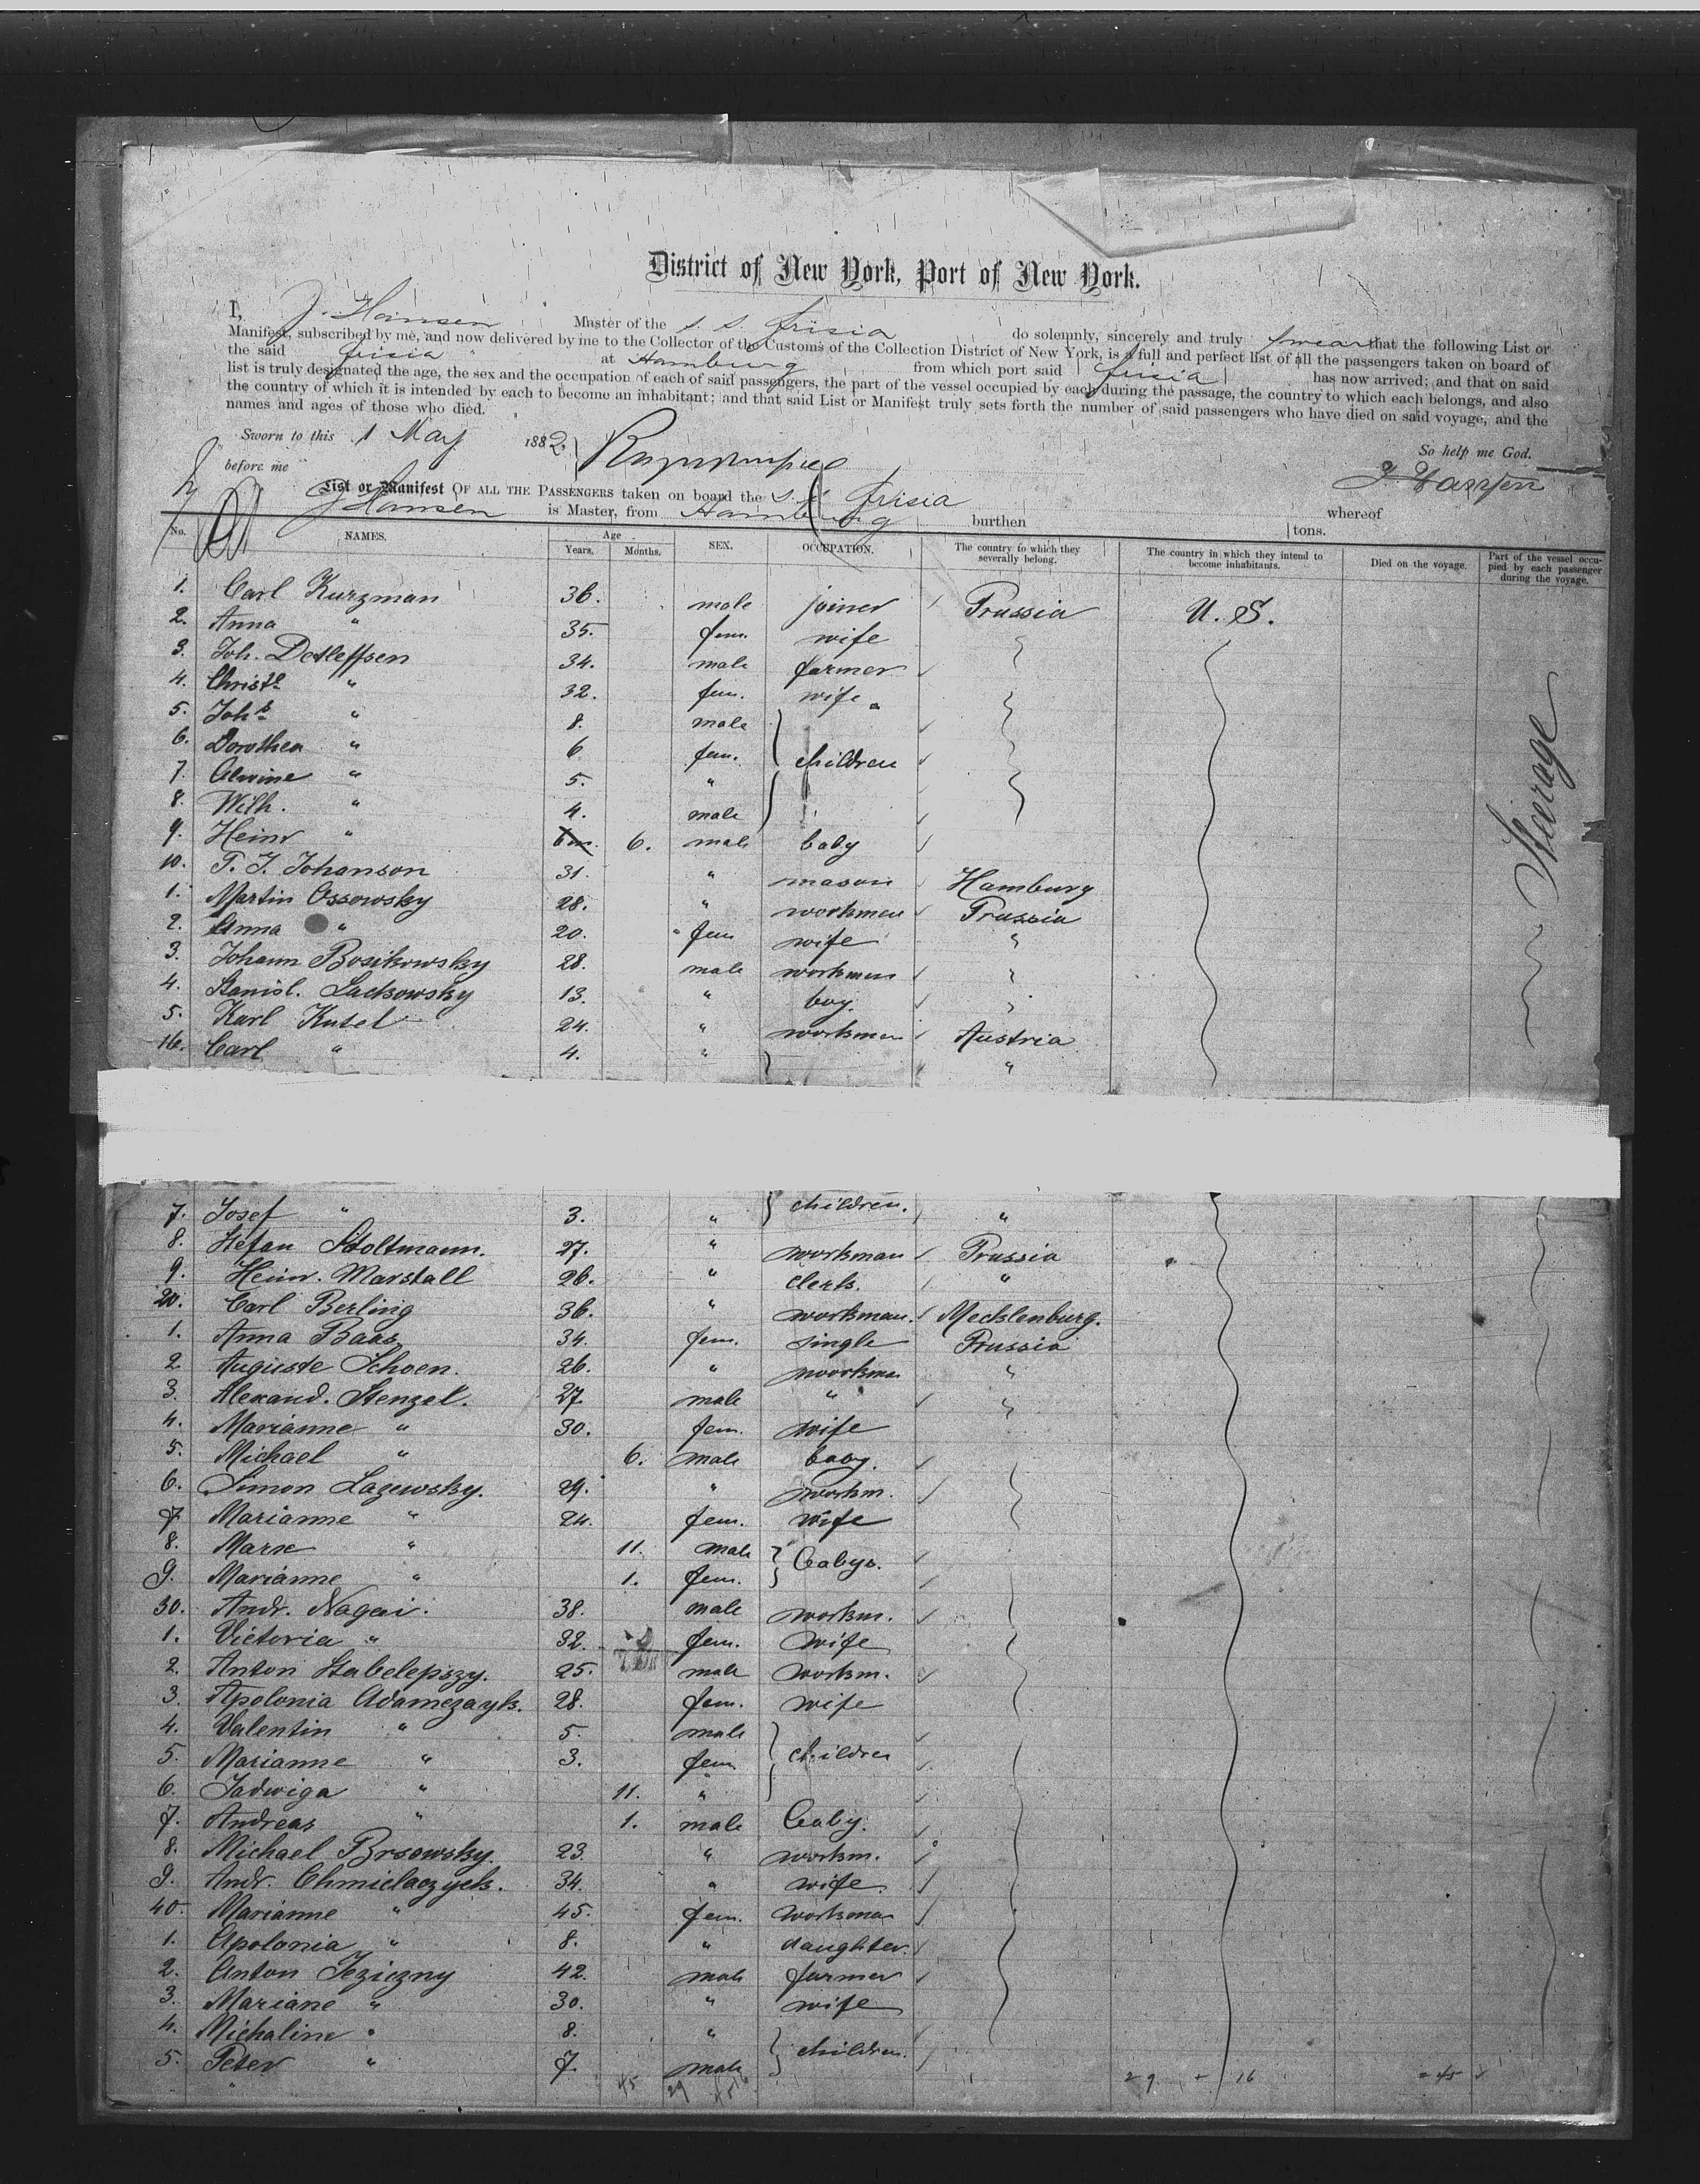 District of New York, Port of New York.
I, J. Hansen Master of the s. s. Frisia do solemnly, sincerely and truly swear that the following List or
Manifest, subscribed by me, and now delivered by me to the Collector of the Customs of the Collection District of New York, is a full and perfect list of all the passengers taken on board of
the said Frisia at Hamburg from which port said Frisia has now arrived; and that on said
list is truly designated the age, the sex and the occupation of each of said passengers, the part of the vessel occupied by each during the passage, the country to which each belongs, and also
the country of which it is intended by each to become an inhabitant; and that said List or Manifest truly sets forth the number of said passengers who have died on said voyage, and the
names and ages of those who died.
So help me God.
Sworn to this 1 May 1882
J. Hansen
before me
List or Manifest OF ALL THE PASSENGERS taken on board the s. s. Frisia whereof
J Hansen is Master, from Hamburg burthen tons.
No. NAMES. Age Years. Months. SEX. OCCUPATION. The country to which they severally belong. The country in which they intend to become inhabitants. Died on the voyage. Part of the vessel occupied by each passenger during the voyage.
1. Carl Kurzman 36. male joiner Prussia U. S.
2. Anna " 35. fem. wife
3. Joh. Detleffsen 34. male farmer
4. Christe " 32. fem. wife
5. Johs " 8. male
6. Dorothea " 6 fem. children
7. Alwine " 5. "
8. Wilh. " 4. male
9. Heinr " 6. male baby
10. T. J. Johanson 31. " mason Hamburg
1. Martin Ossowsky 28. " workman Prussia
2. Anna " 20. fem wife "
3. Johann Bosikowsky 28. male workman "
4. Stanisl. Lackowsky 13. " boy "
5. Karl Kutel 24. " workman Austria
16. Carl " 4. " "
Steerage
7. Josef " 3. " children. "
8. Stefan Stoltmann. 27. " workman Prussia
9. Heinr. Marstall 26. " clerk. "
20. Carl Berling 36. " workman. Mecklenburg.
1. Anna Baas 34. fem. single Prussia
2 Auguste Schoen. 26. " workman "
3. Alexand. Stenzel. 27. male " "
4. Marianne " 30. fem. wife
5. Michael " 6. male baby.
6. Simon Lazewsky. 29. " workm.
7 Marianne " 24. fem. wife
8. Marx " 11. male babys.
9. Marianne " 1. fem.
30. Andr. Nagai. 38. male workm.
1. Victoria " 32. fem. wife
2. Anton Stabelepszy. 25. male workm.
3. Apolonia Adamczayk. 28. fem. wife
4. Valentin " 5. male
5. Marianne " 3. fem children
6. Jadwiga " 11. "
7. Andreas " 1. male baby.
8. Michael Brsowsky. 23. " workm.
9. Andr. Chmielaczyck. 34. " wife.
40. Marianne " 45. fem. workman
1. Apolonia " 8. " daughter.
2. Anton Jeziczny 42. male farmer
3. Mariane " 30. " wife
4. Michaline " 8. "
5. Peter " 7. male children.
29 + 16 = 45